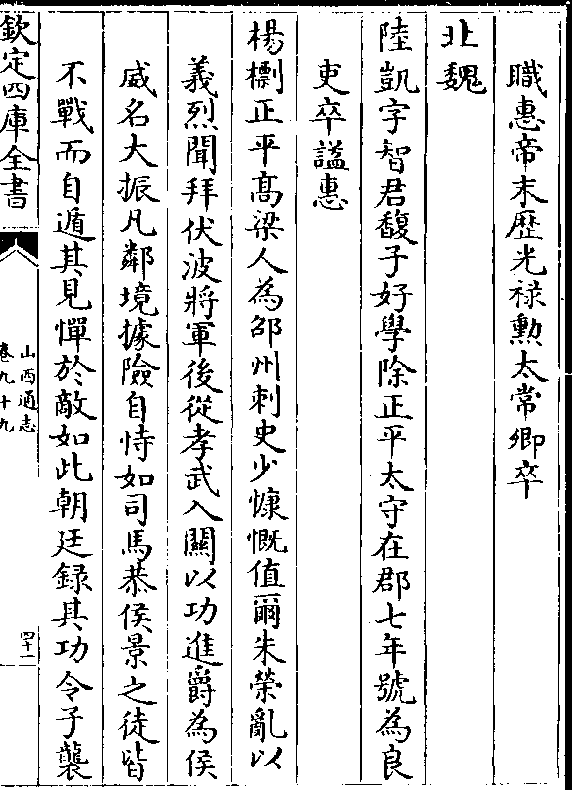 職惠帝末歷光祿勲太常卿卒
北魏
陸凱字智君馥子好學除正平太守在郡七年號為良
吏卒謚惠
楊㯹正平髙梁人為邵州刺史少慷慨值爾朱榮亂以
義烈聞拜伏波將軍後從孝武入關以功進爵為侯
威名大振凡鄰境據險自恃如司馬恭侯景之徒皆
不戰而自遁其見憚於敵如此朝廷録其功令子襲
欽定四庫全書
山西通志
卷九十九
四十一